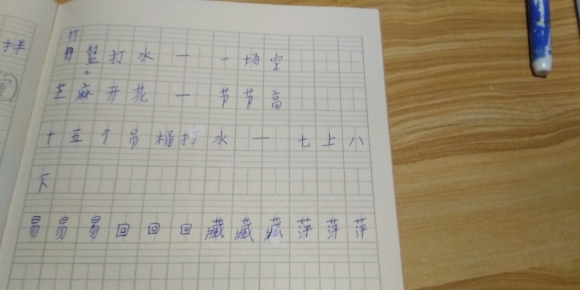 竹篮打水一一场空
芝麻开花一节节高
十五个吊桶打水一七上八
下
易易易回回回藏藏藏萍萍萍